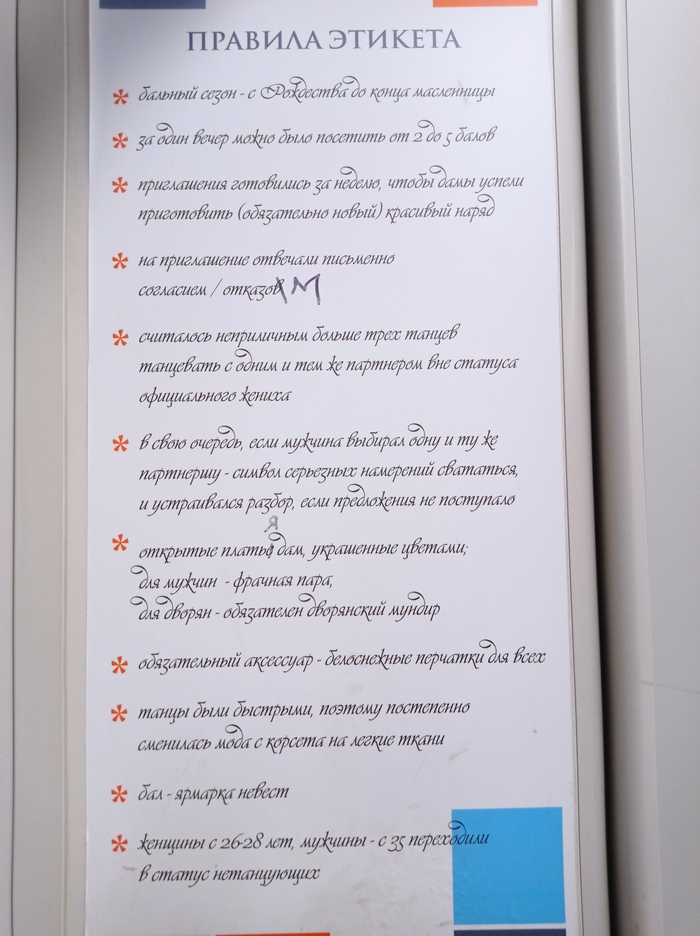 ПРАВИЛА ЭТИКЕТА
* бальный сезон - с Рождества до конца масленницы
* за один вечер можно было посетить от 2 до 5 балов
* приглашения готовились за неделю, чтобы дамы успели
приготовить (обязательно новый) красивый наряд
* на приглашение отвечали письменно
согласием / отказов М
* считалось неприличным больше трех танцев
танцевать с одним и тем же партнером вне статуса
официального жениха
* в свою очередь, если мужчина выбирал одну и ту же
партнершу - символ серьезных намерений свататься,
и устраивался разбор, если предложения не поступало
я
* открытые платье дам, украшенные цветами;
для мужчин - фрачная пара;
для дворян - обязателен дворянский мундир
* обязательный аксессуар - белоснежные перчатки для всех
* танцы были быстрыми, поэтому постепенно
сменилась мода с корсета на легкие ткани
* бал - ярмарка невест
* женщины с 26-28 лет, мужчины - с 35 переходили
в статус нетанцующих